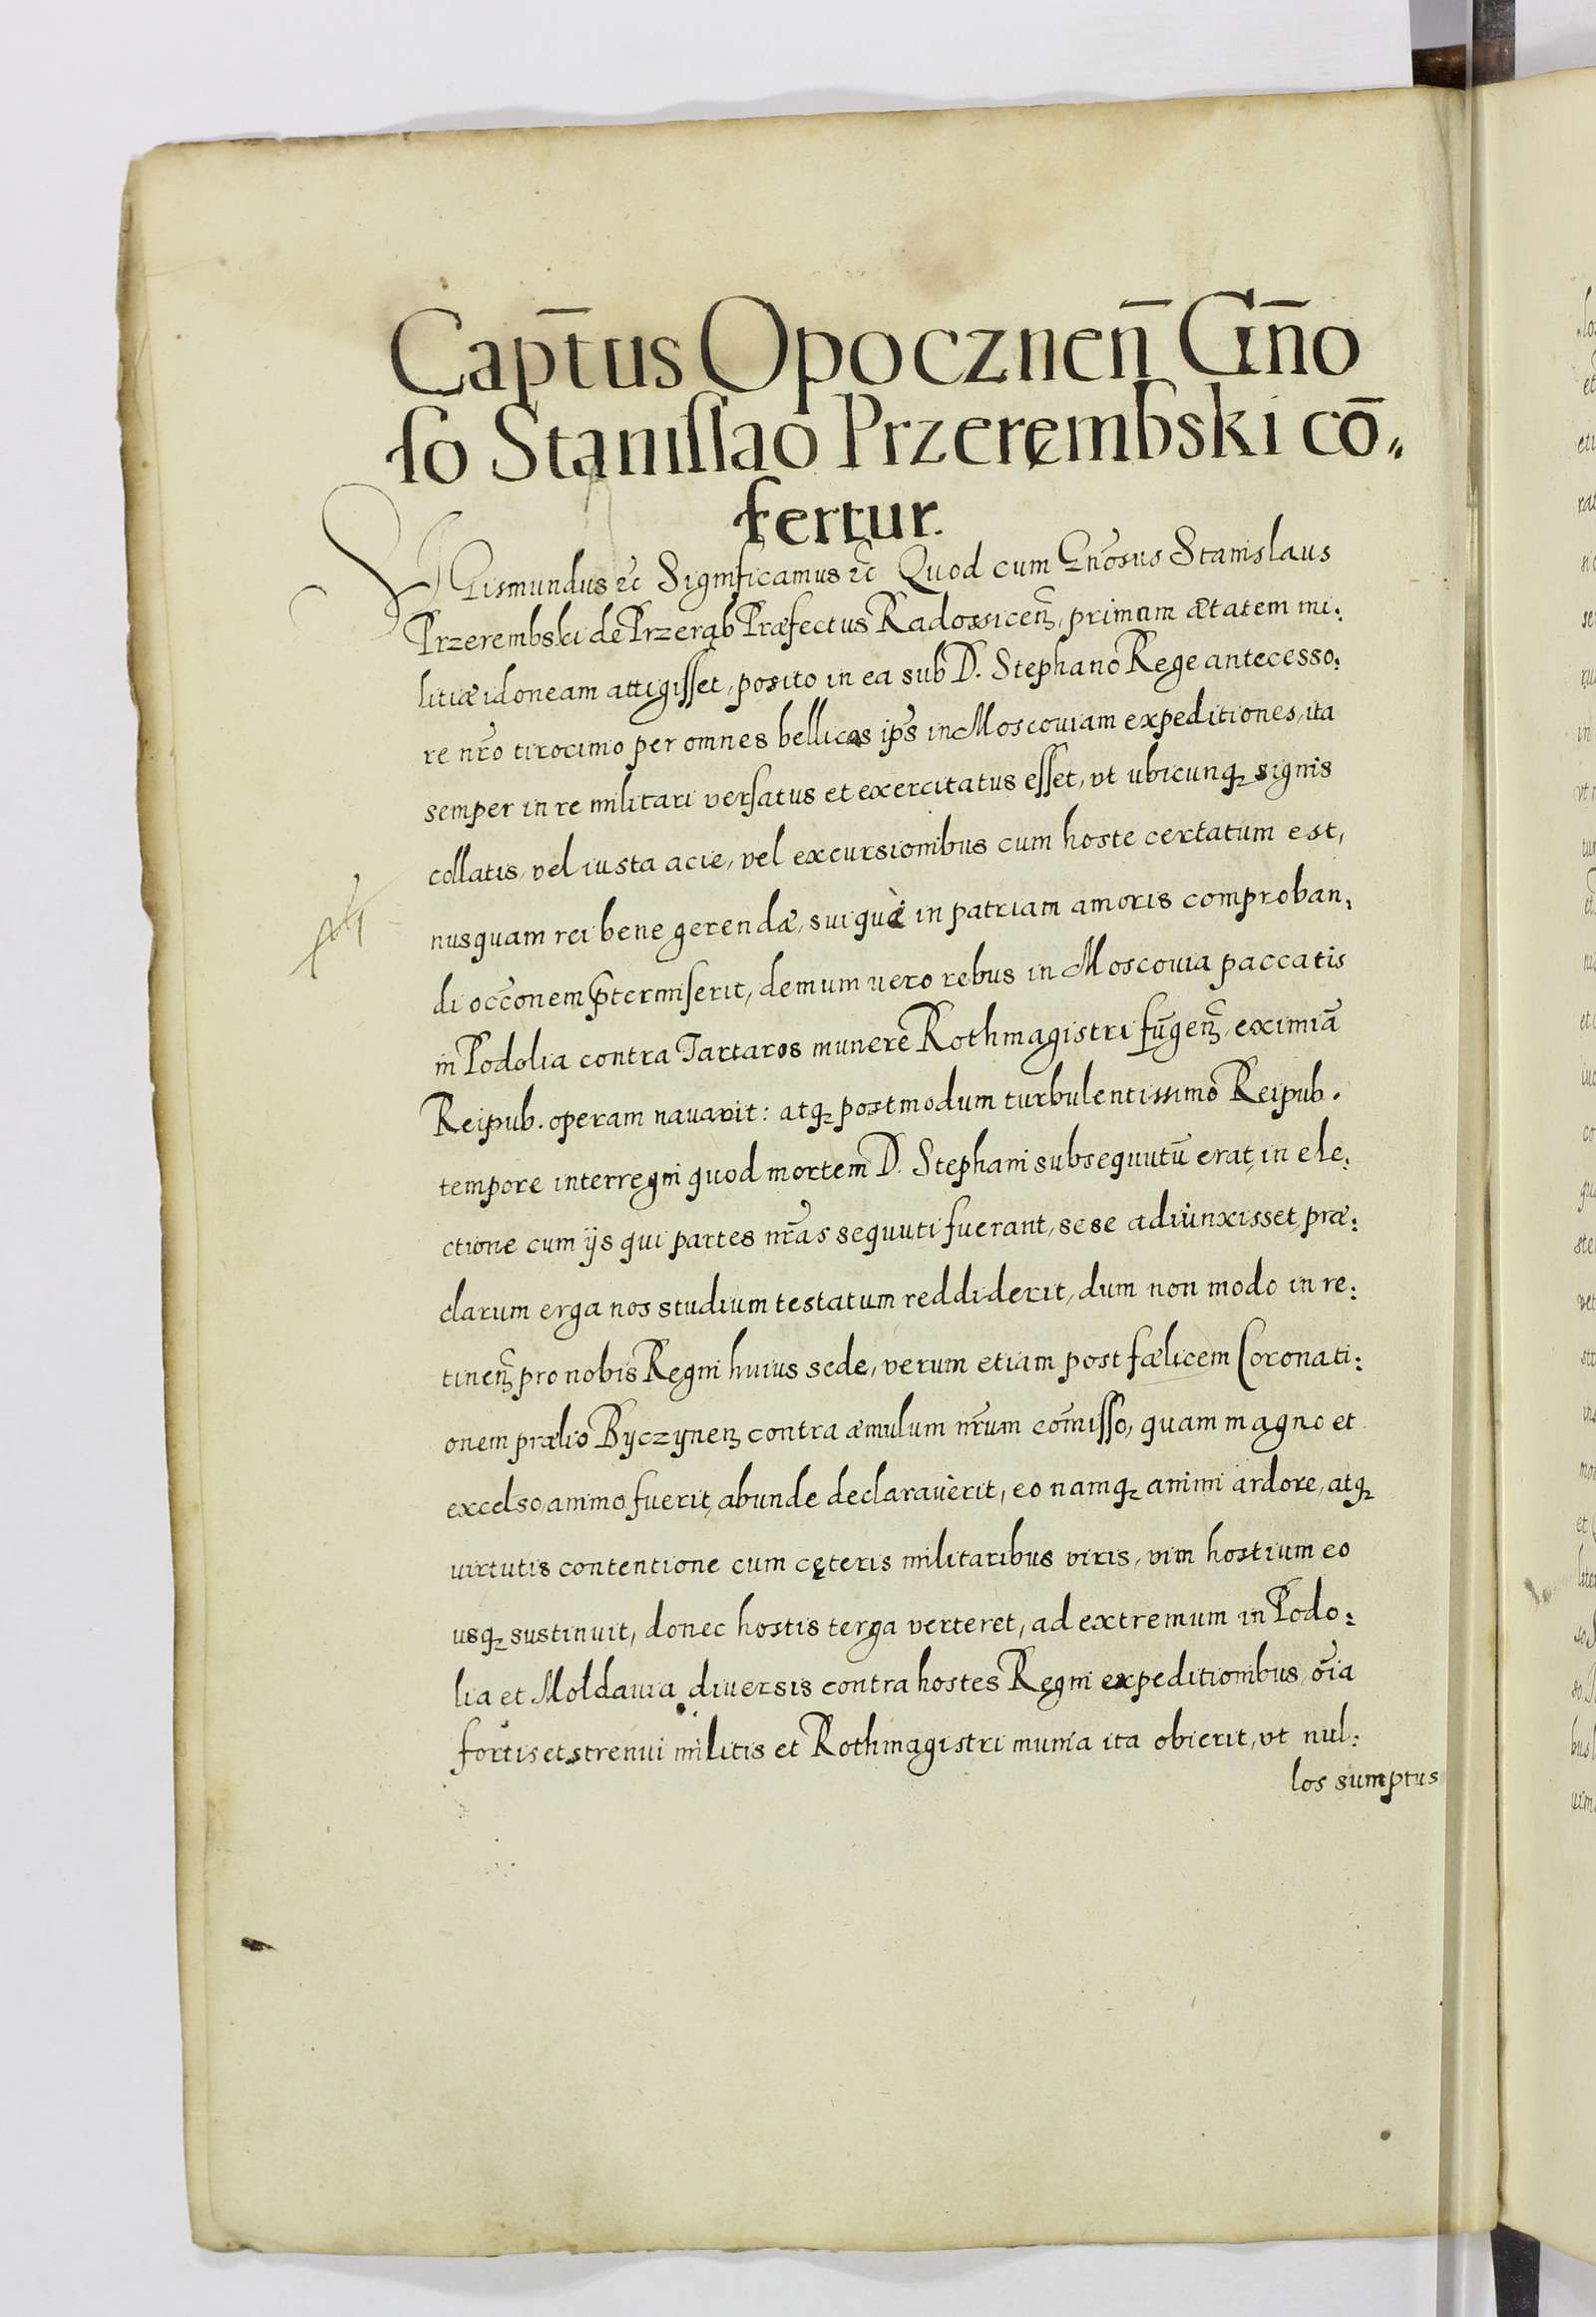 Capt̄us Opocznen̄ Gn̄o
so Stanislao Przerembski cō„
fertur.
Sigismundus ꝛc̄ Significamus ꝛc̄ Quod cum Gn̄osus Stanislaus
Przerembski de Przerąb Præfectus Radoxsicen̄, primum ætatem mi:
litiæ idoneam attigisset, posito in ea sub D. Stephano Rege antecesso:
re nr̄o tirocinio per omnes bellicas ip̄s in Moscouiam expeditiones, ita
semper in re militari versatus et exercitatus esset, vt ubicunqꝫ signis
collatis, vel iusta acie, vel excursionibus cum hoste certatum est,
nusquam rei bene gerendæ, suiquè in patriam amoris comproban:
di occ̄onem p̄termiserit, demum uero rebus in Moscouia paccatis
in Podolia contra Tartaros munere Rothmagistri fūgen̄, eximiā
Reipub. operam nauarit: atqꝫ postmodum turbulentissimo Reipub.
tempore interregni quod mortem D. Stephani subsequutū erat, in ele:
ctione cum ijs qui partes nr̄as sequuti fuerant, sese adiunxisset, præ:
clarum erga nos studium testatum reddiderit, dum non modo in re:
tinen̄ pro nobis Regni huius sede, verum etiam post fælicem Coronati:
onem prælio Byczynen̄ contra æmulum nr̄um com̄isso, quam magno et
excelso animo fuerit, abunde declarauerit, eo namqꝫ animi ardore, atqꝫ
uirtutis contentione cum cęteris militaribus viris, vim hostium eo
usqꝫ sustinuit, donec hostis terga verteret, ad extremum in Podo:
lia et Moldauia diuersis contra hostes Regni expeditionibus, oīa
fortis et strenui militis et Rothmagistri munia ita obierit, vt nul:
los sumptus